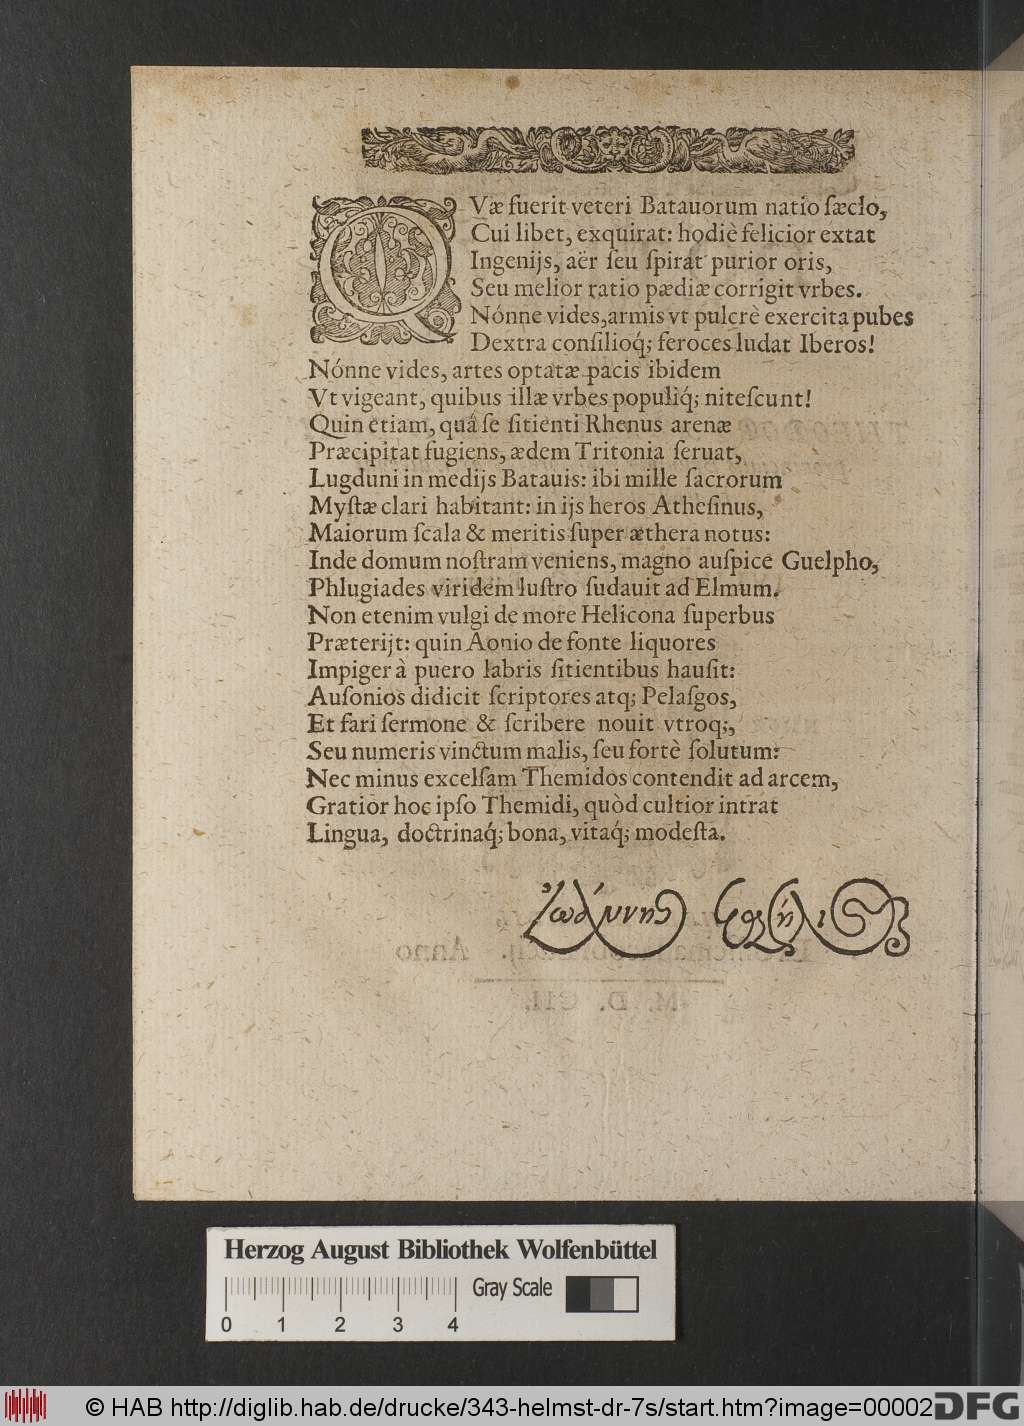 QVæ fuerit veteri Batauorum natio ſæclo,
Cui libet, exquirat: hodiè felicior extat
Ingenijs, aër ſeu ſpirat purior oris,
Seu melior ratio pædiæ corrigit vrbes.
Nónne vides, armis vt pulcrè exercita pubes
Dextra conſilioq́; feroces ludat Iberos!
Nónne vides, artes optatæ pacis ibidem
Vt vigeant, quibus illæ vrbes populiq́; niteſcunt!
Quin etiam, quá ſe ſitienti Rhenus arenæ
Præcipitat fugiens, ædem Tritonia ſeruat,
Lugduni in medijs Batauis: ibi mille ſacrorum
Myſtæ clari habitant: in ijs heros Atheſinus,
Maiorum ſcala & meritis ſuper æthera notus:
Inde domum noſtram veniens, magno auſpice Guelpho,
Phlugiades viridem luſtro ſudauit ad Elmum.
Non etenim vulgi de more Helicona ſuperbus
Præterijt: quin Aonio de fonte liquores
Impiger à puero labris ſitientibus hauſit:
Auſonios didicit ſcriptores atq; Pelaſgos,
Et fari ſermone & ſcribere nouit vtroq;,
Seu numeris vinctum malis, ſeu fortè ſolutum:
Nec minus excelſam Themidos contendit ad arcem,
Gratior hoc ipſo Themidi, quòd cultior intrat
Lingua, doctrinaq́; bona, vitaq́; modeſta.
Ἰωάννης
Herzog August Bibliothek Wolfenbüttel
Gray Scale
0 1 2 3 4
© HAB http://diglib.hab.de/drucke/343-helmst-dr-7s/start.htm?image=00002
DFG